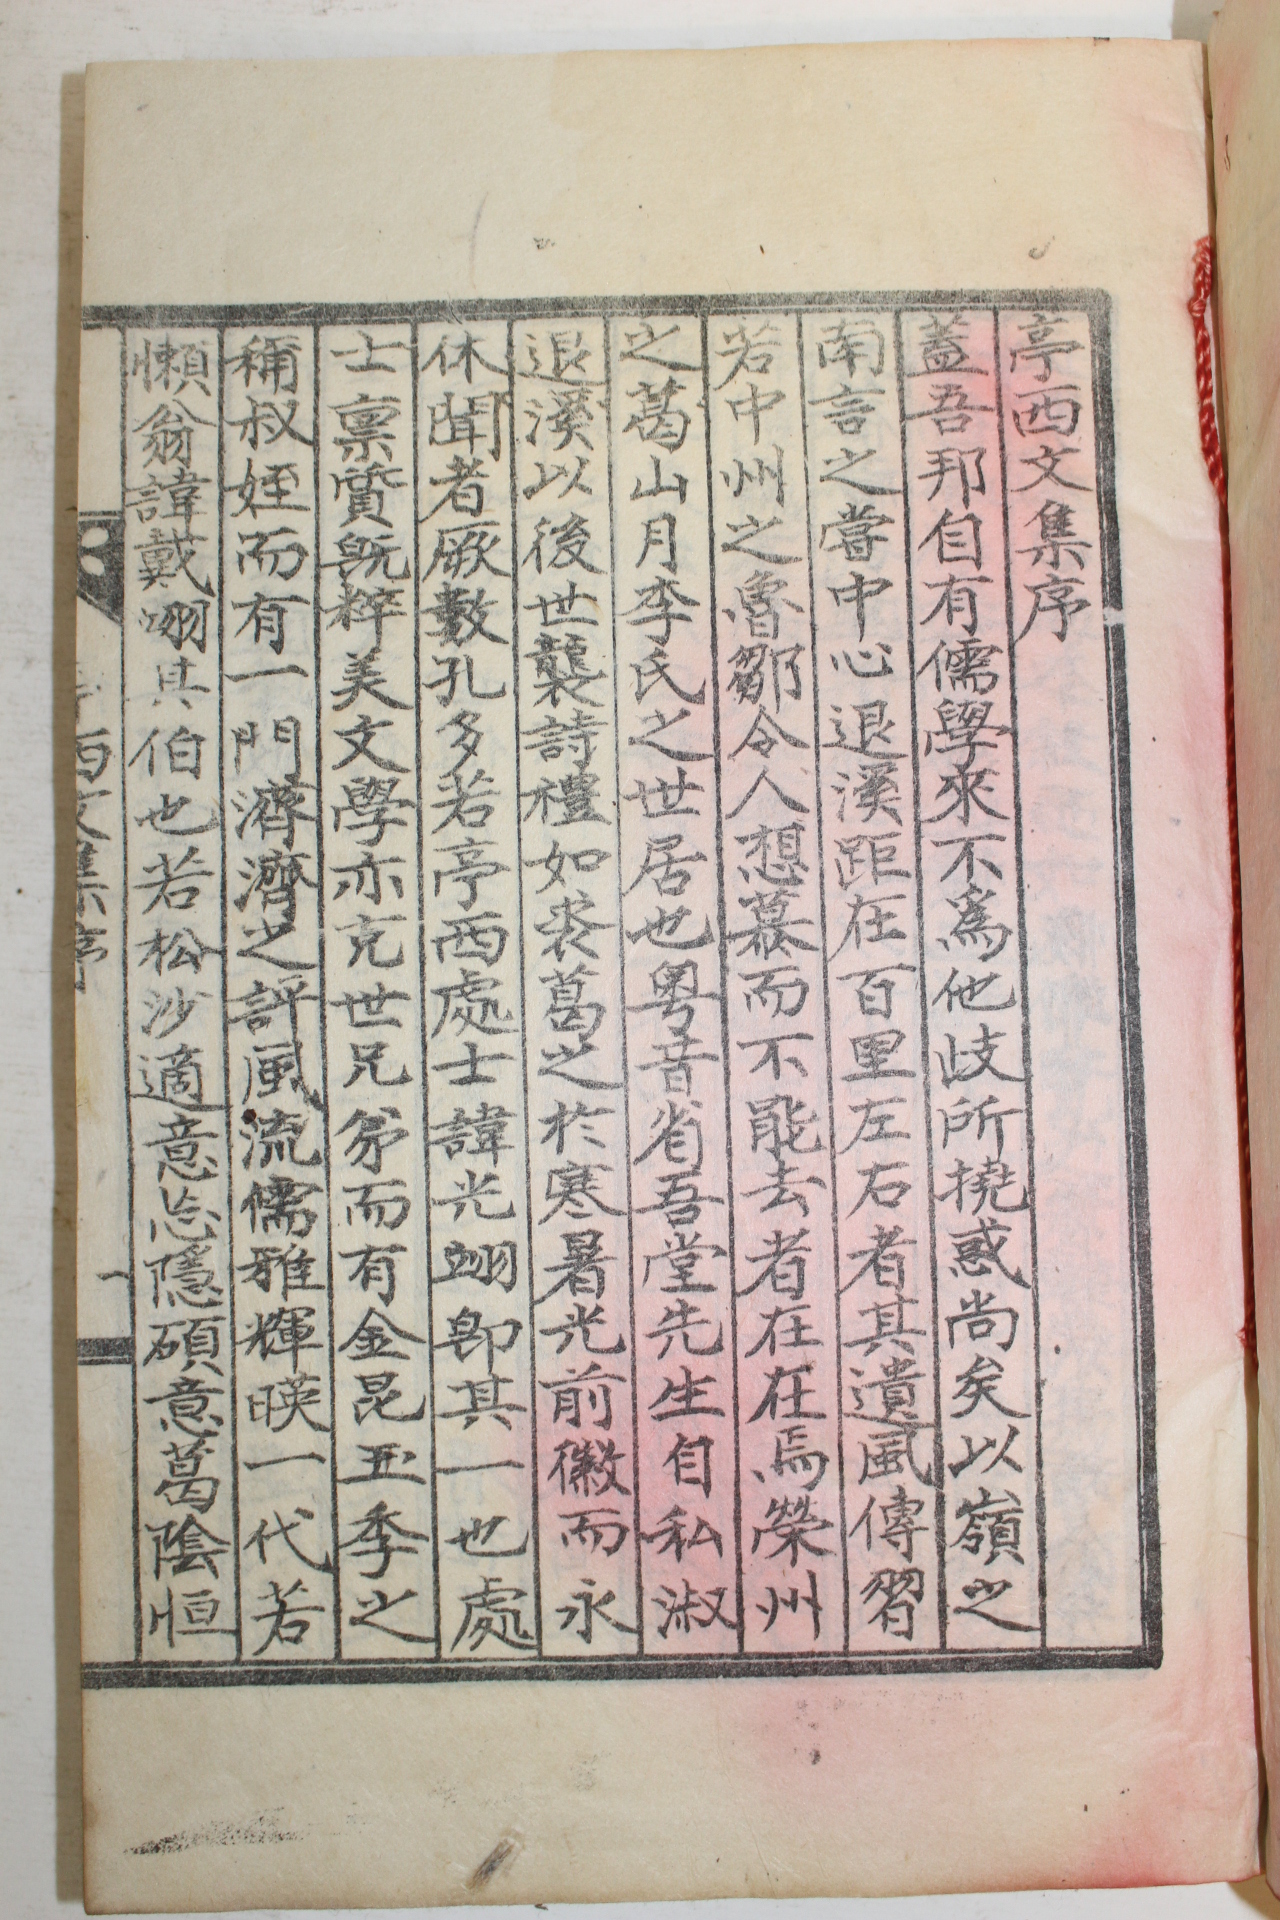 亭西文集序
蓋吾邦自有儒學來不爲他歧所撓惑尚矣以嶺之
南言之嘗中心退溪距在百里左右者其遺風傳習
若中州之魯鄒令人想慕而不能去者在在焉榮州
之葛山月李氏之世居也粤昔省吾堂先生自私淑
退溪以後世襲詩禮如裘葛之於寒暑光前徽而永
休聞者厥數孔多若亭西處士諱光翊卽其一也處
士禀質旣粹美文學亦克世兄弟而有金昆玉季之
稱叔姪而有一門濟濟之評風流儒雅輝暎一代若
懶翁諱戴翊其伯也若松沙適意忘隱碩意葛陰恒
亭西文集序
一